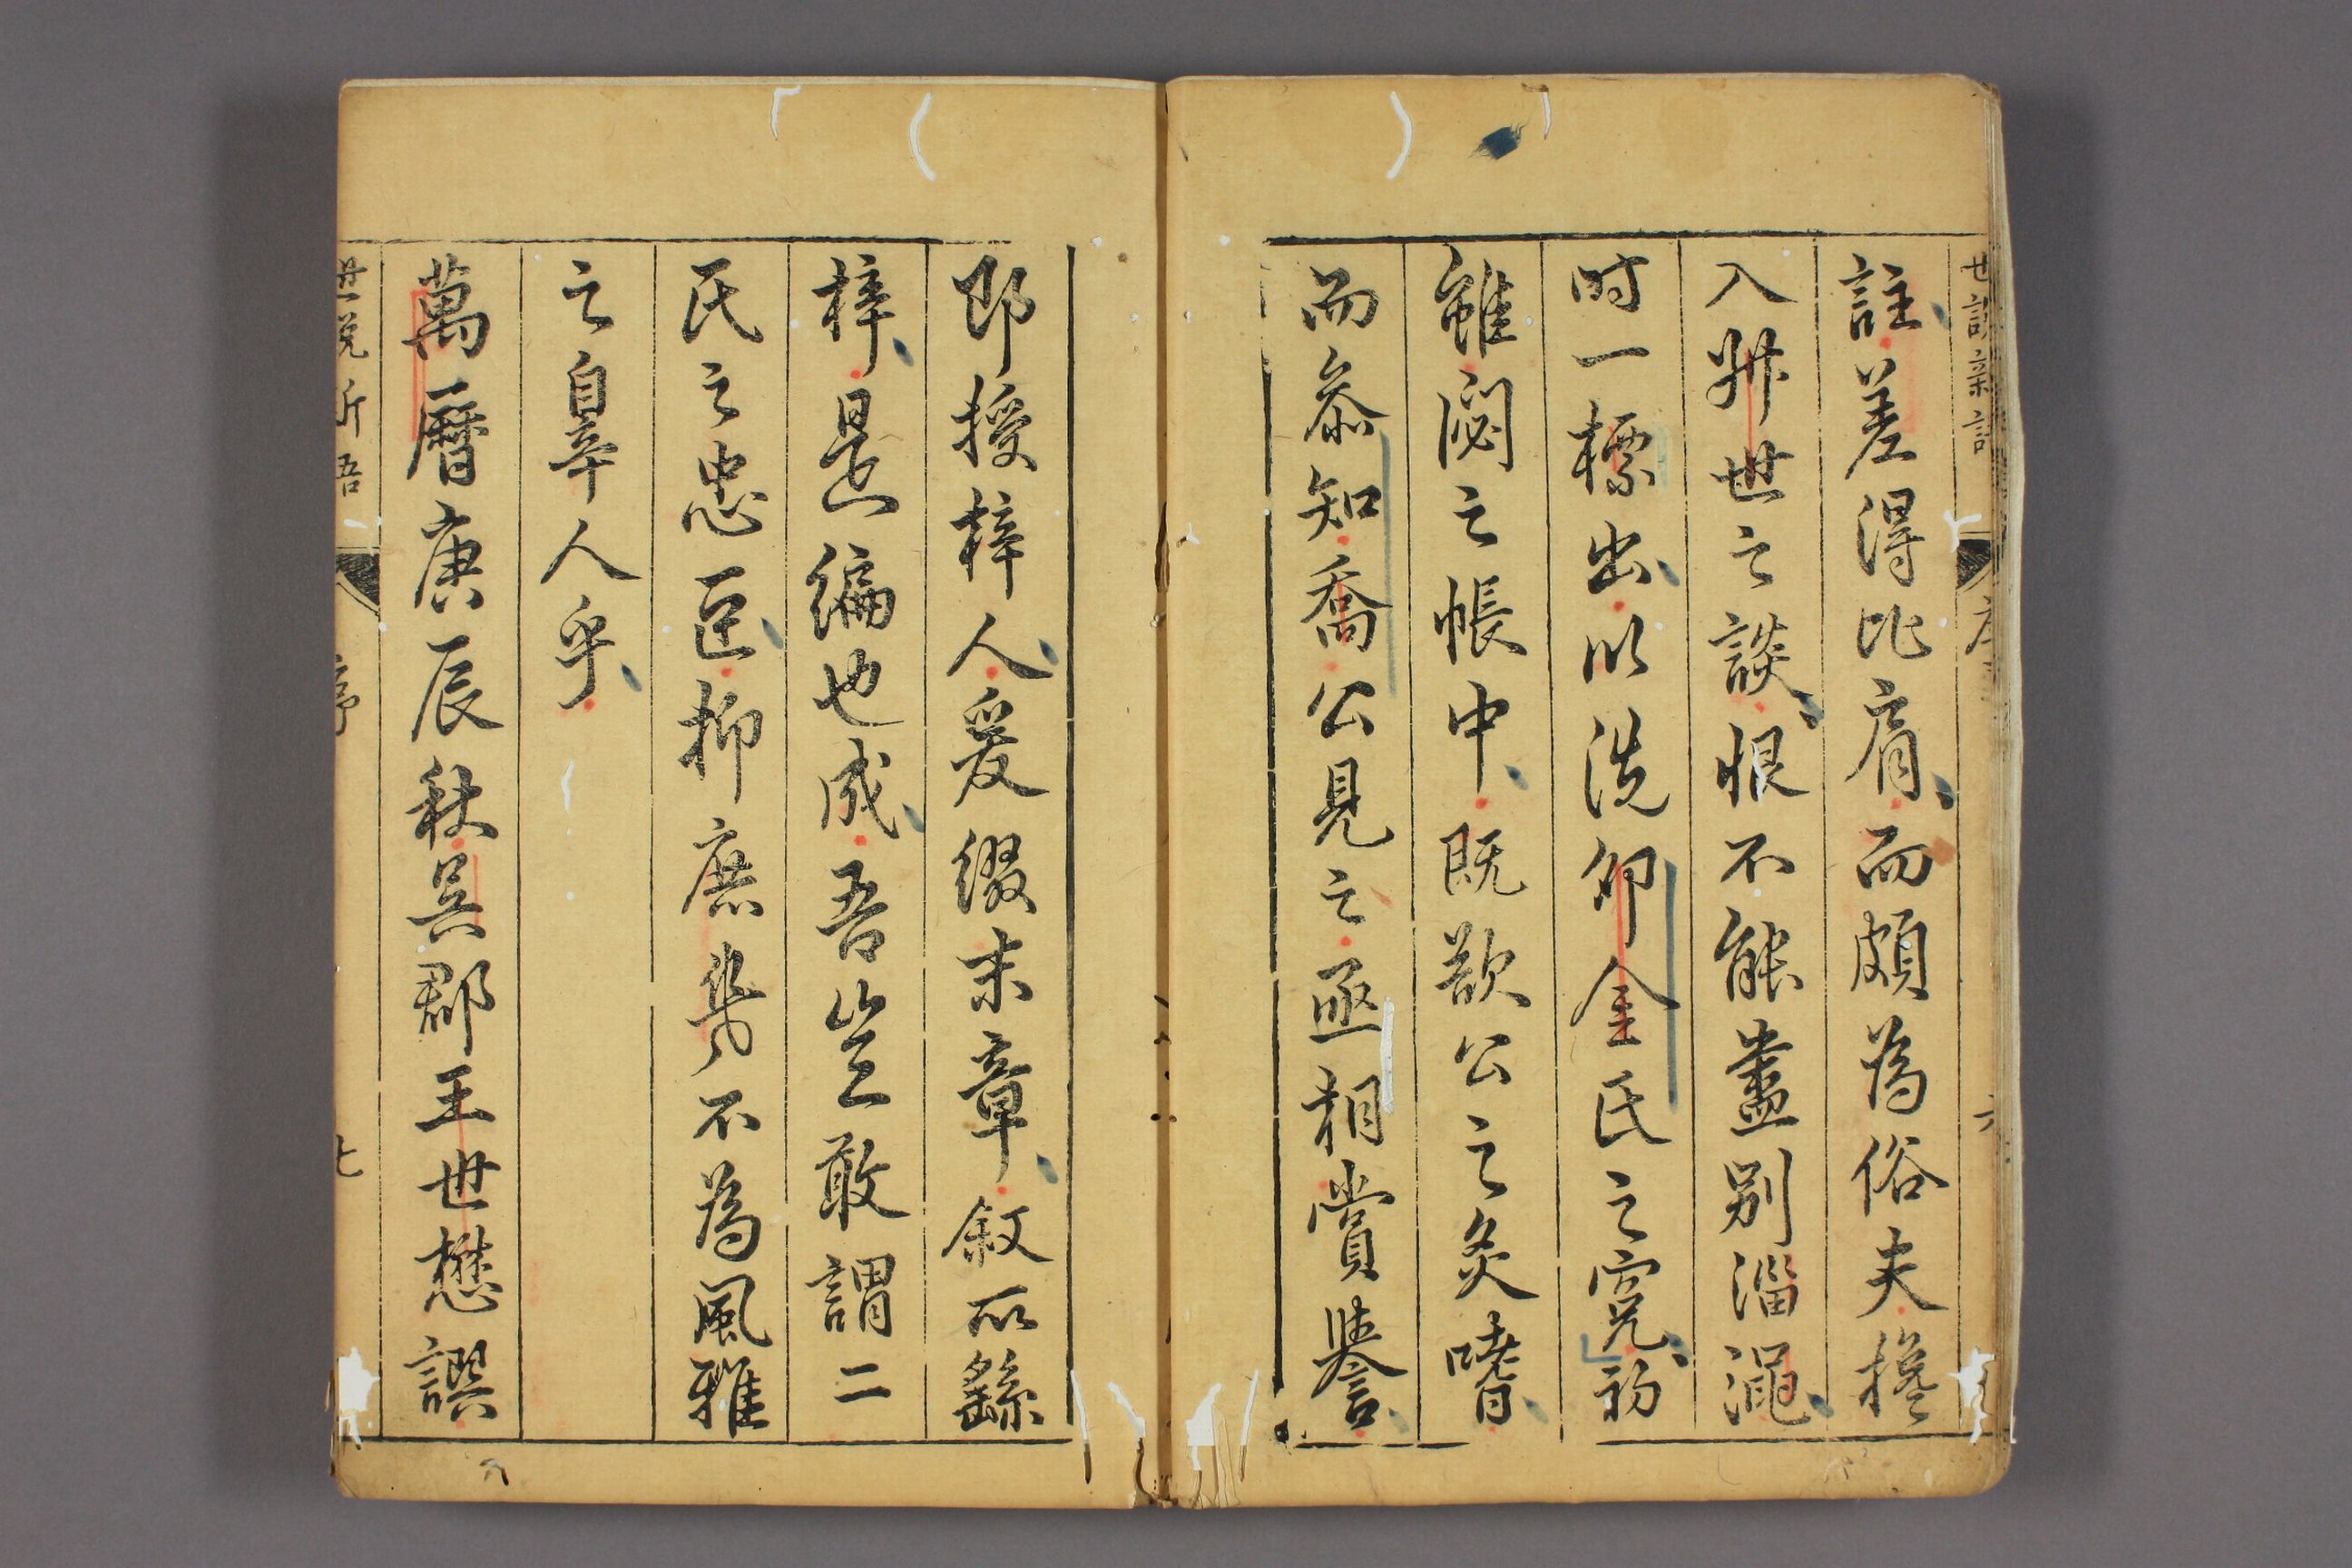 世說新語
序
六
註差得比肩而頗為俗夫攙
入叔世之談恨不能盡別淄澠
時一標出以洗卯金氏之寃初
雖閟之帳中旣欲公之炙嗜
而叅知喬公見之亟相賞譽
即授梓人爰綴末章叙所繇
梓是編也成吾豈敢謂二
氏之忠臣抑庶幾不為風雅
之辠人乎
萬曆庚辰秋吳郡王世懋譔
世說新語
序
七